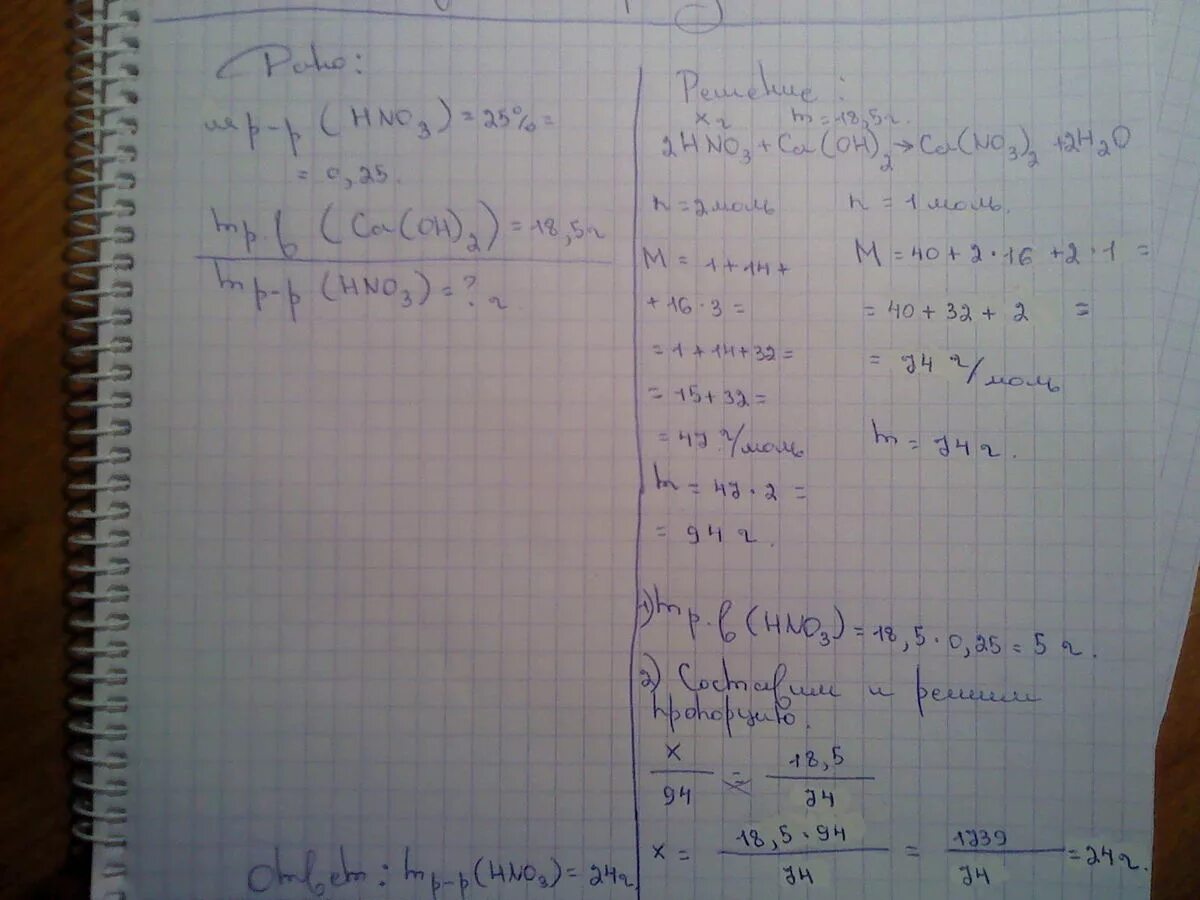 Дано:
m р-р (HNO3) = 25% =
= 0,25.
mр.в (Ca(OH)2) = 18,5г
mр-р (HNO3) = ? г
Решение:
x г m = 18,5г.
2HNO3 + Ca(OH)2 → Ca(NO3)2 + 2H2O
n = 2 моль n = 1 моль.
M = 1 + 14 + M = 40 + 2 · 16 + 2 · 1 =
+ 16 · 3 = = 40 + 32 + 2 =
= 1 + 14 + 32 = = 74 г/моль
= 15 + 32 =
= 47 г/моль m = 74 г.
m = 47 · 2 =
= 94 г.
1) mр.в (HNO3) = 18,5 · 0,25 = 5 г.
2) Составим и решим
пропорцию.
x/94 = 18,5/74
x = 18,5 · 94/74 = 1739/74 = 24г.
Ответ: mр-р(HNO3) = 24г